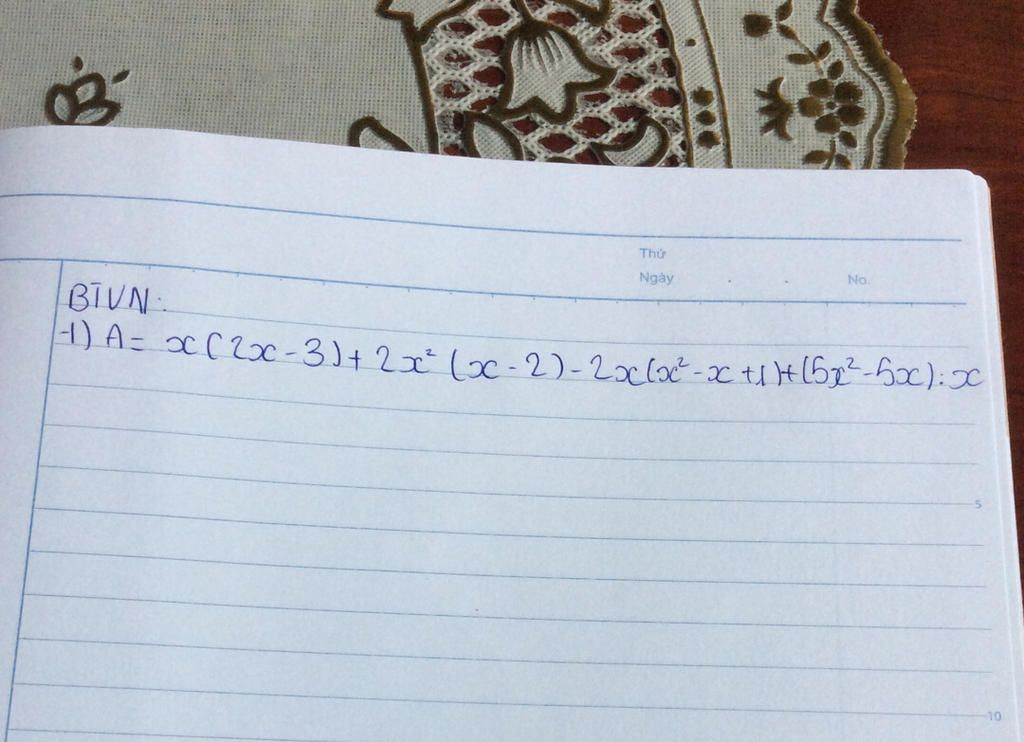 Thứ
Ngày . . No.
BTVN:
1) A = x(2x - 3) + 2x² (x - 2) - 2x(x² - x + 1) + (5x² - 5x) : x
5
10